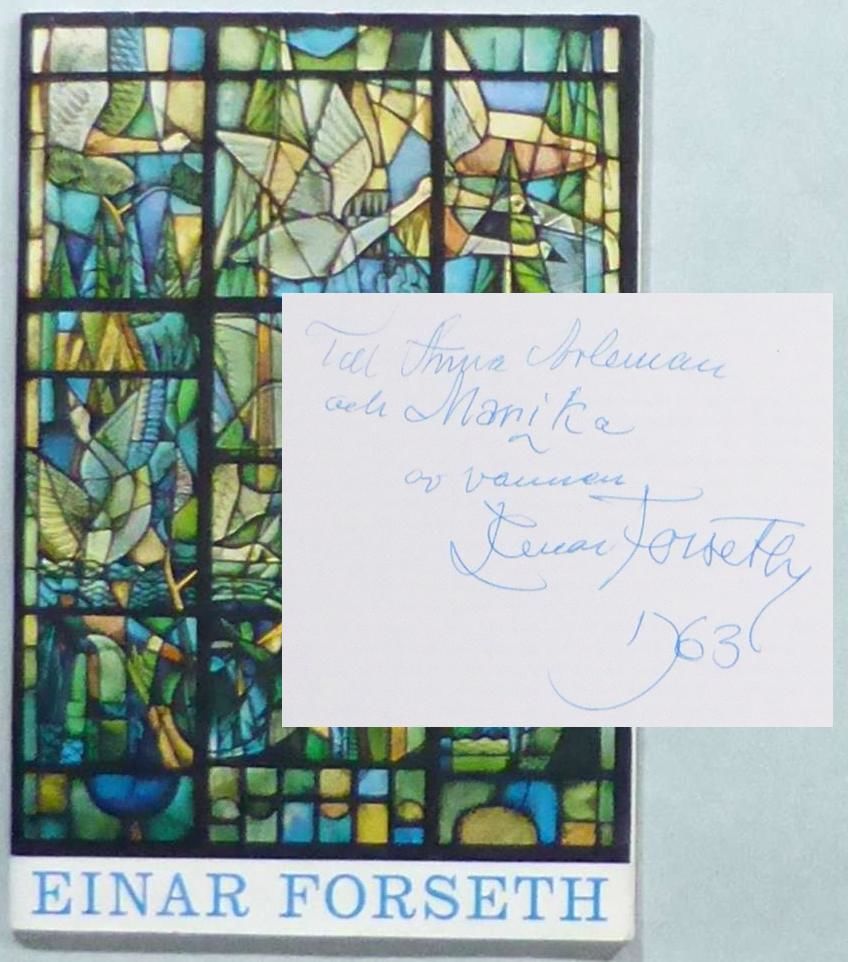 Till Anna Arleman
och Marika
av vännen
Einar Forseth
1963
EINAR FORSETH